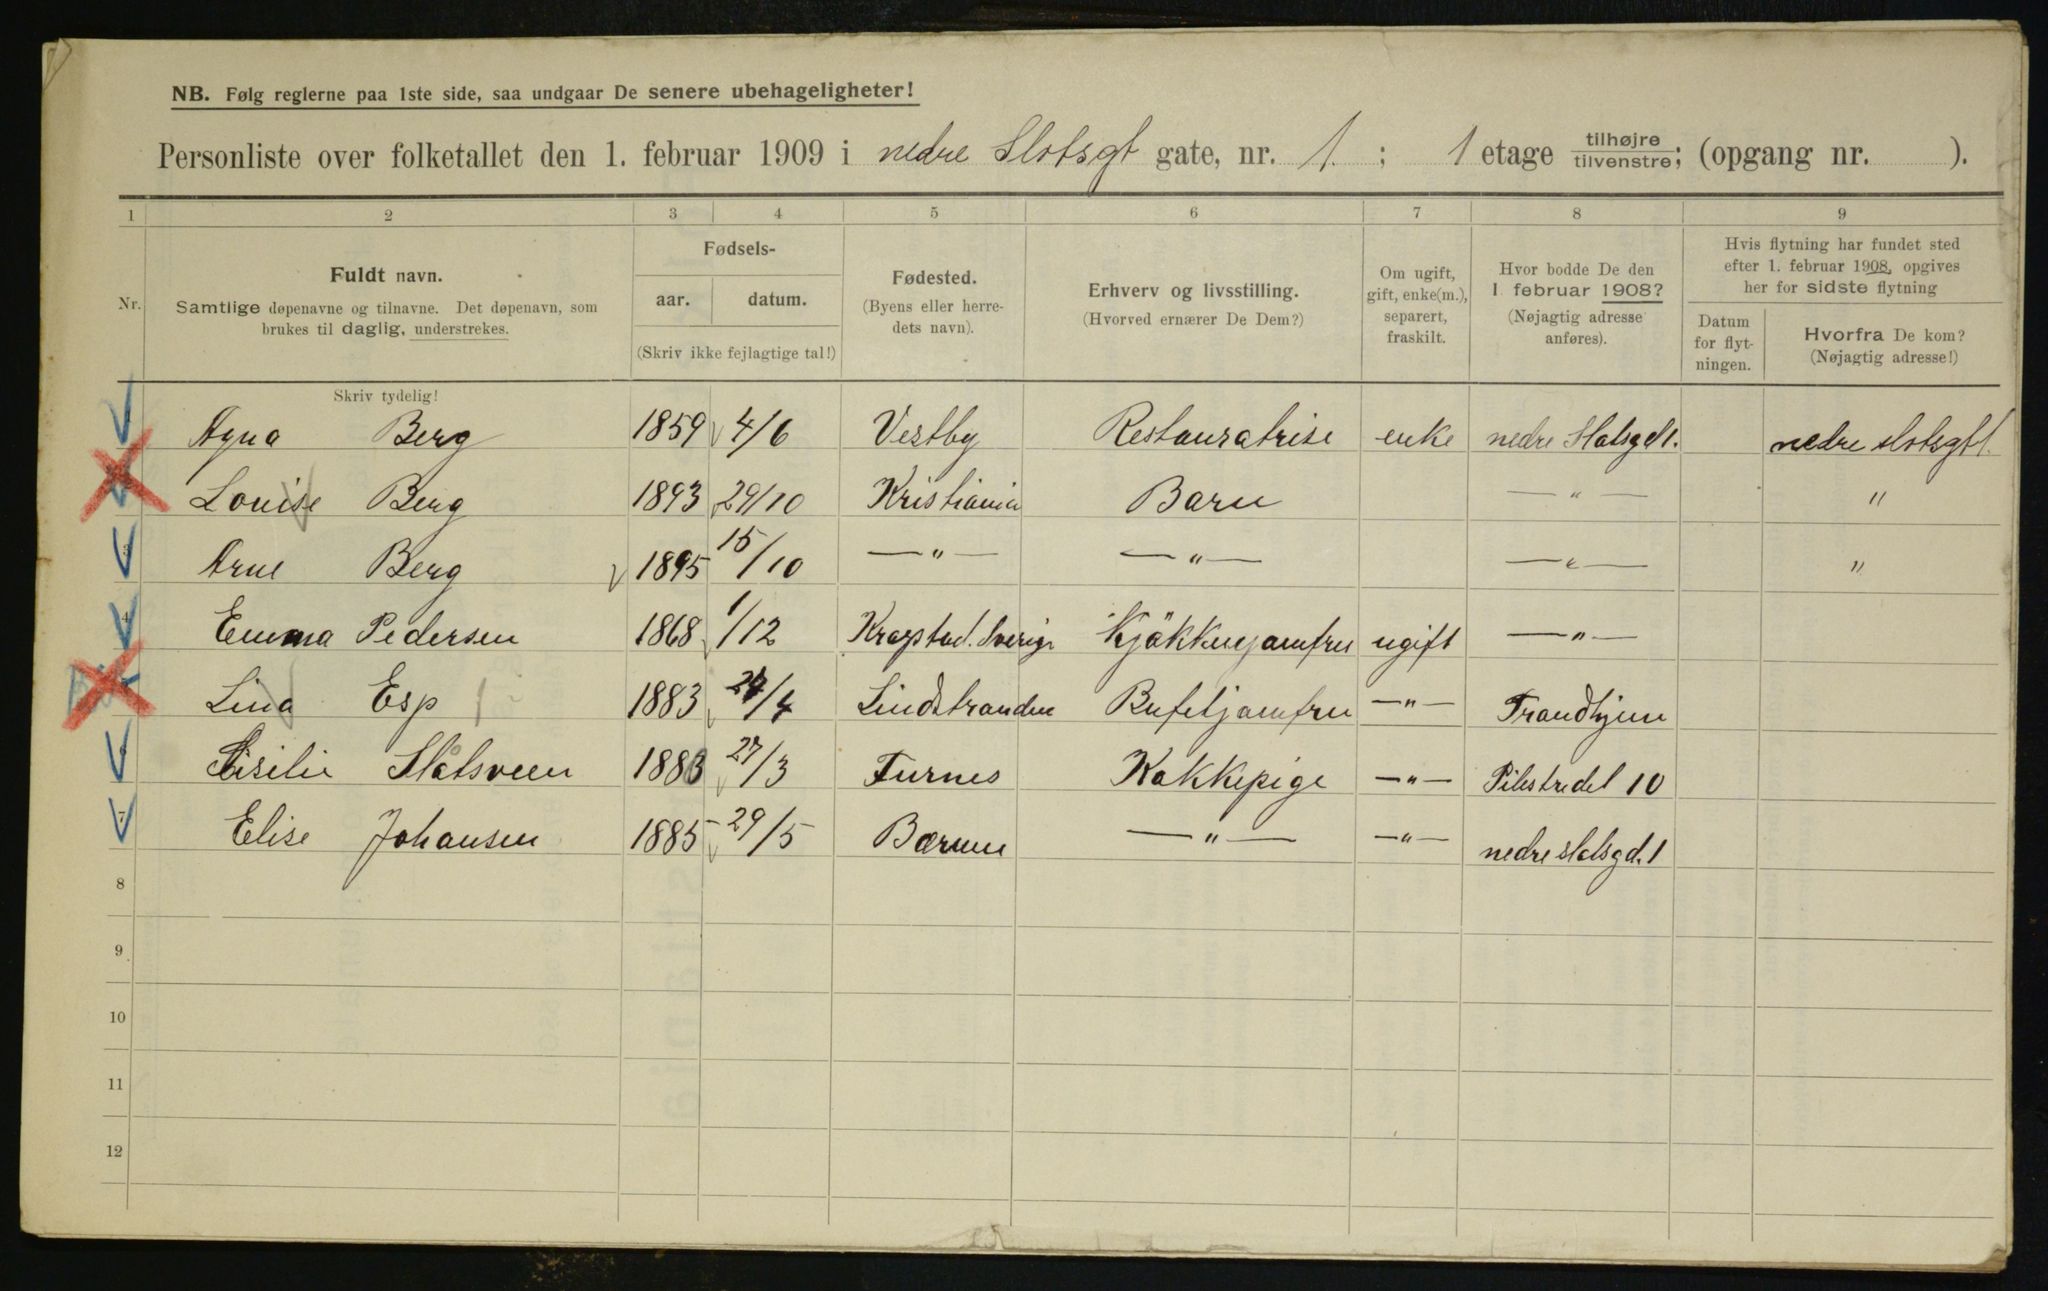 NB. Følg reglerne paa 1ste side, saa undgaar De senere ubehageligheter!
Personliste over folketallet den 1. februar 1909 i nedre Slotsgt gate, nr. 1. ; 1 etage tilhøjre tilvenstre; (opgang nr. ).
1 2 3 4 5 6 7 8 9
Nr.
Fuldt navn.
Samtlige døpenavne og tilnavne. Det døpenavn, som
brukes til daglig, understrekes.
Skriv tydelig!
Fødsels-
aar. datum.
(Skriv ikke fejlagtige tal!)
Fødested.
(Byens eller herre-
dets navn).
Erhverv og livsstilling.
(Hvorved ernærer De Dem?)
Om ugift,
gift, enke(m.),
separert,
fraskilt.
Hvor bodde De den
1 februar 1908?
(Nøjagtig adresse
anføres).
Hvis flytning har fundet sted
efter 1. februar 1908, opgives
her for sidste flytning
Datum
for flyt-
ningen.
Hvorfra De kom?
(Nøjagtig adresse!)
Berg 1859 4/6 Vestby Restauratrise enke nedre Slotsgd 1. nedre slotsgt 1.
Louise Berg 1893 29/10 Kristiania Barn —"— "
3 Arne Berg 1895 15/10 —"— —"— —"— "
4 Emma Pedersen 1868 1/12 Sverige Kjøkkenjomfru ugift —"—
Lina Esp 1883 /4 Lindstranden Bufetjomfru —"— Trondhjem
6 Sisilie Slåtsveen 1883 27/3 Furnes Kokkepige —"— Pilestredet 10
7 Elise Johansen 1885 29/5 Bærum —"— —"— nedre slotsgd. 1
8
9
10
11
12